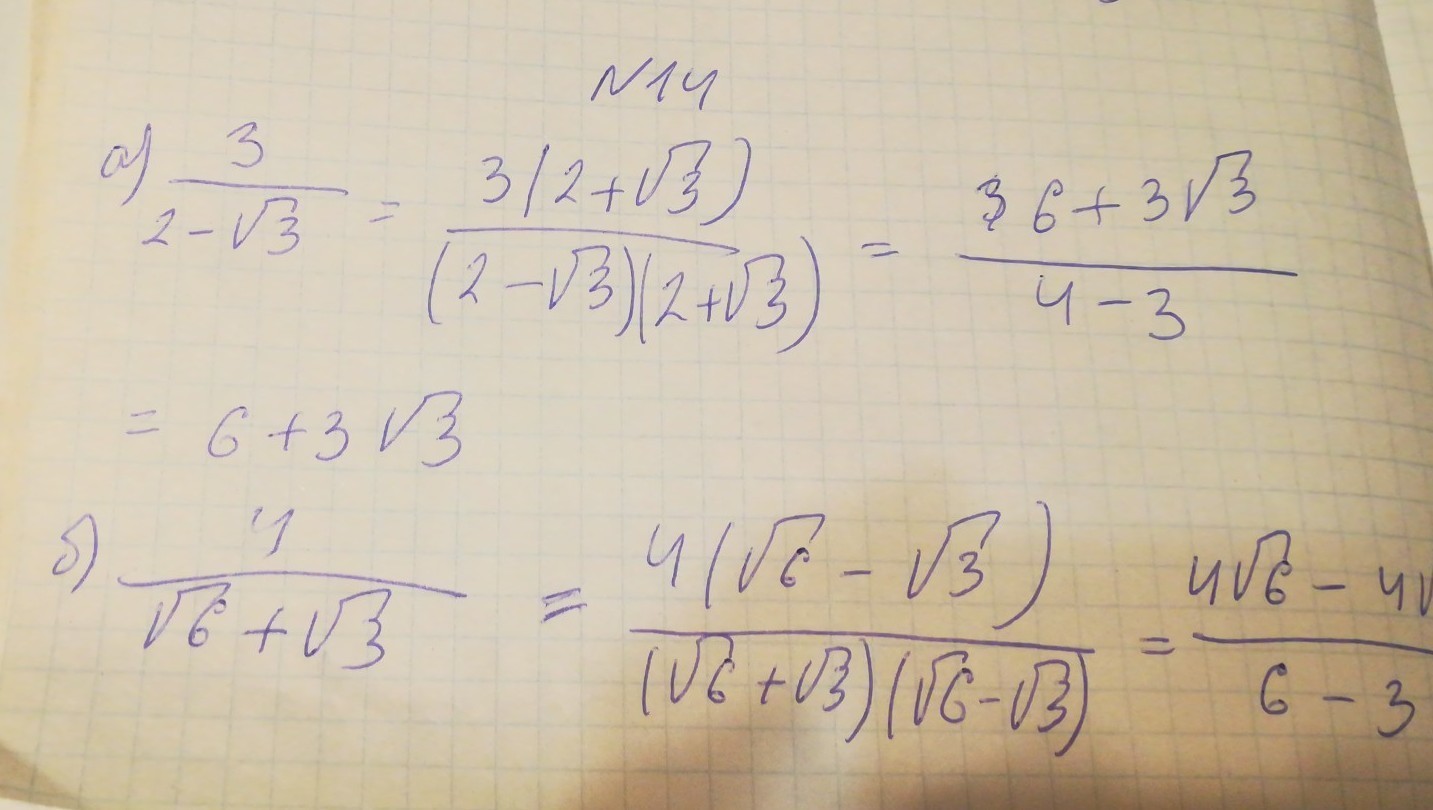 N14
а) 3/(2-√3) = 3(2+√3)/((2-√3)(2+√3)) = (6+3√3)/(4-3)
= 6+3√3
б) 4/(√6+√3) = 4(√6-√3)/((√6+√3)(√6-√3)) = (4√6-4√)/(6-3)